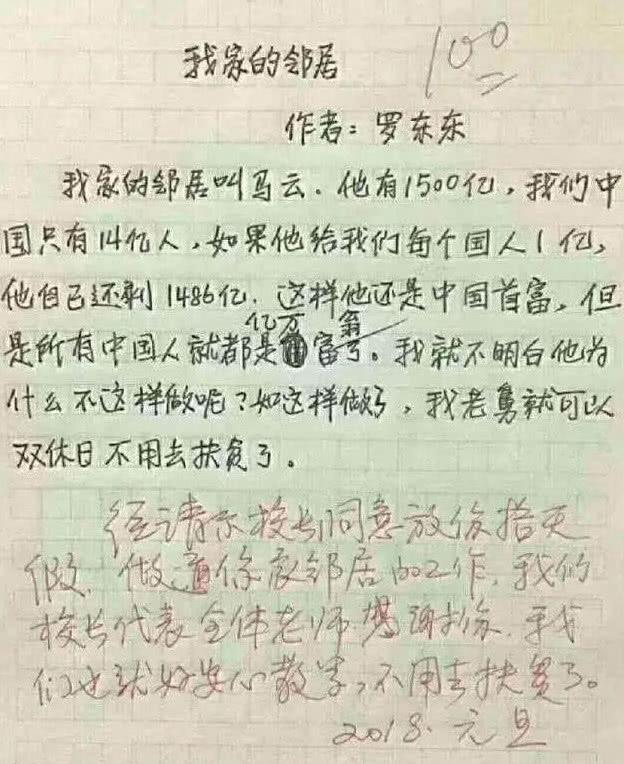 我家的邻居
100
作者：罗东东
我家的邻居叫马云．他有1500亿，我们中
国只有14亿人，如果他给我们每个国人1亿，
他自己还剩1486亿．这样他还是中国首富，但
亿万 翁
是所有中国人就都是富了。我就不明白他为
什么不这样做呢？如这样做了，我老舅就可以
双休日不用去扶贫了。
经请示校长同意放你拾天
假．做通你家邻居的工作，我们
校长代表全体老师感谢你．我
们也就好安心教学，不用去扶贫了。
2018.元旦